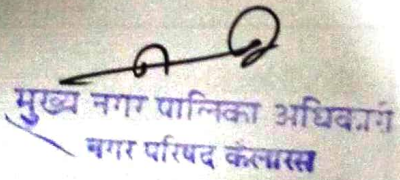 मुख्य नगर पालिका अधिकारी
नगर परिषद कैलारस